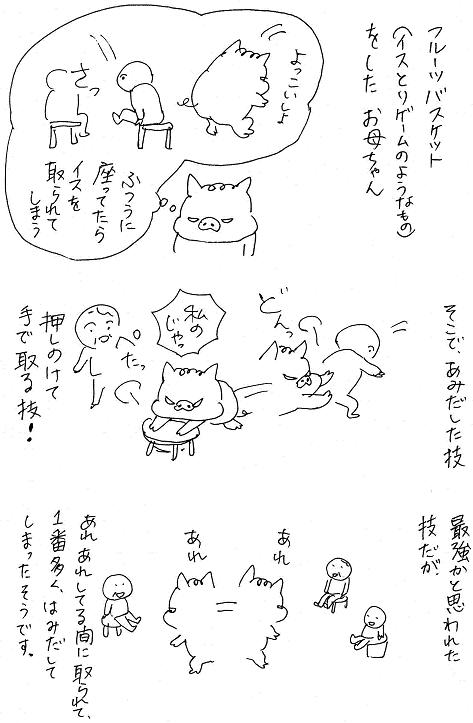 フルーツバスケット
（イスとりゲームのようなもの）
をした お母ちゃん
よっこいしょ
さっ
ふつうに
座ってたら
イスを
取られて
しまう
そこで、あみだした技
どんっ
私の
じゃっ
ぺたっ
押しのけて
手で取る技！
最強かと思われた
技だが、
あれ
あれ
あれあれしてる間に取られて、
１番多く、はみだして
しまったそうです。